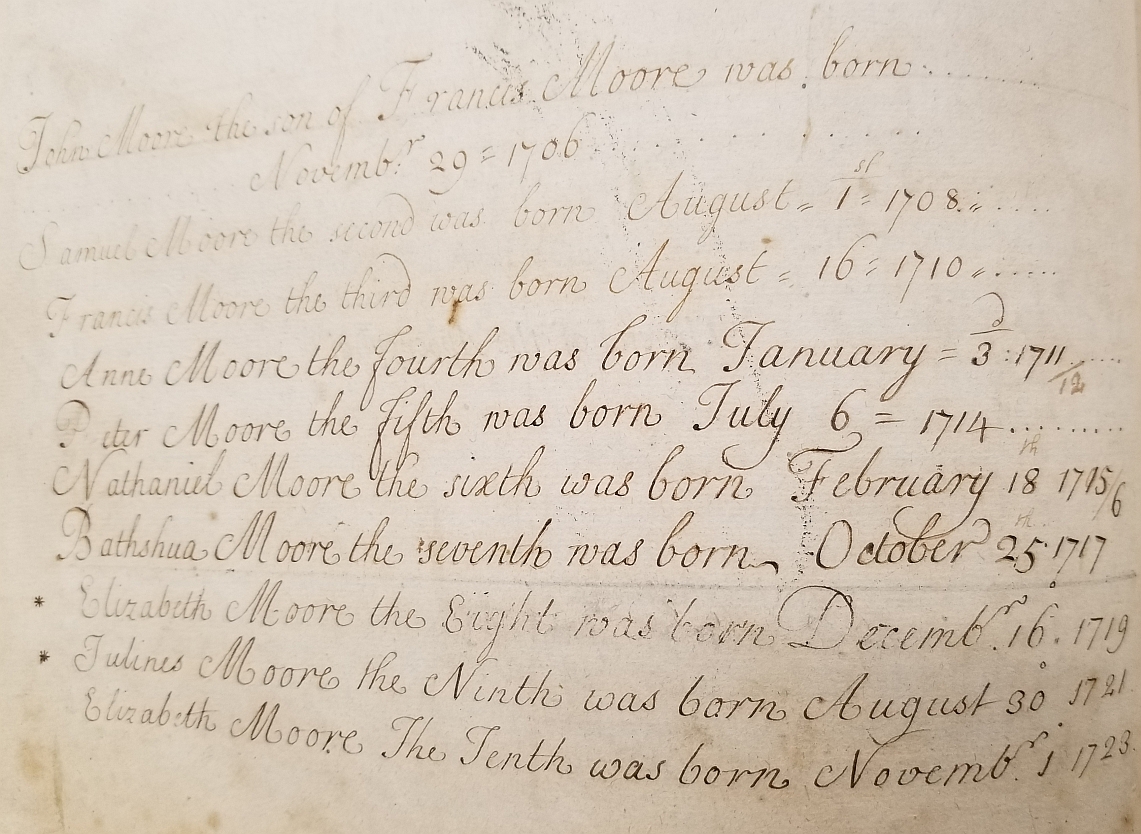 John Moore the son of Francis Moore was born
Novembr 29 = 1706
Samuel Moore the second was born August = 1st = 1708
Francis Moore the third was born August = 16 = 1710
Anne Moore the fourth was born January = 3d : 1711/12
Peter Moore the fifth was born July 6 = 1714
Nathaniel Moore the sixth was born February 18th 1715/6
Bathshua Moore the seventh was born October 25th 1717
* Elizabeth Moore the Eight was born Decembr. 16. 1719
* Julines Moore the Ninth was born August 30 1721
Elizabeth Moore The Tenth was born Novembr. 1 1723